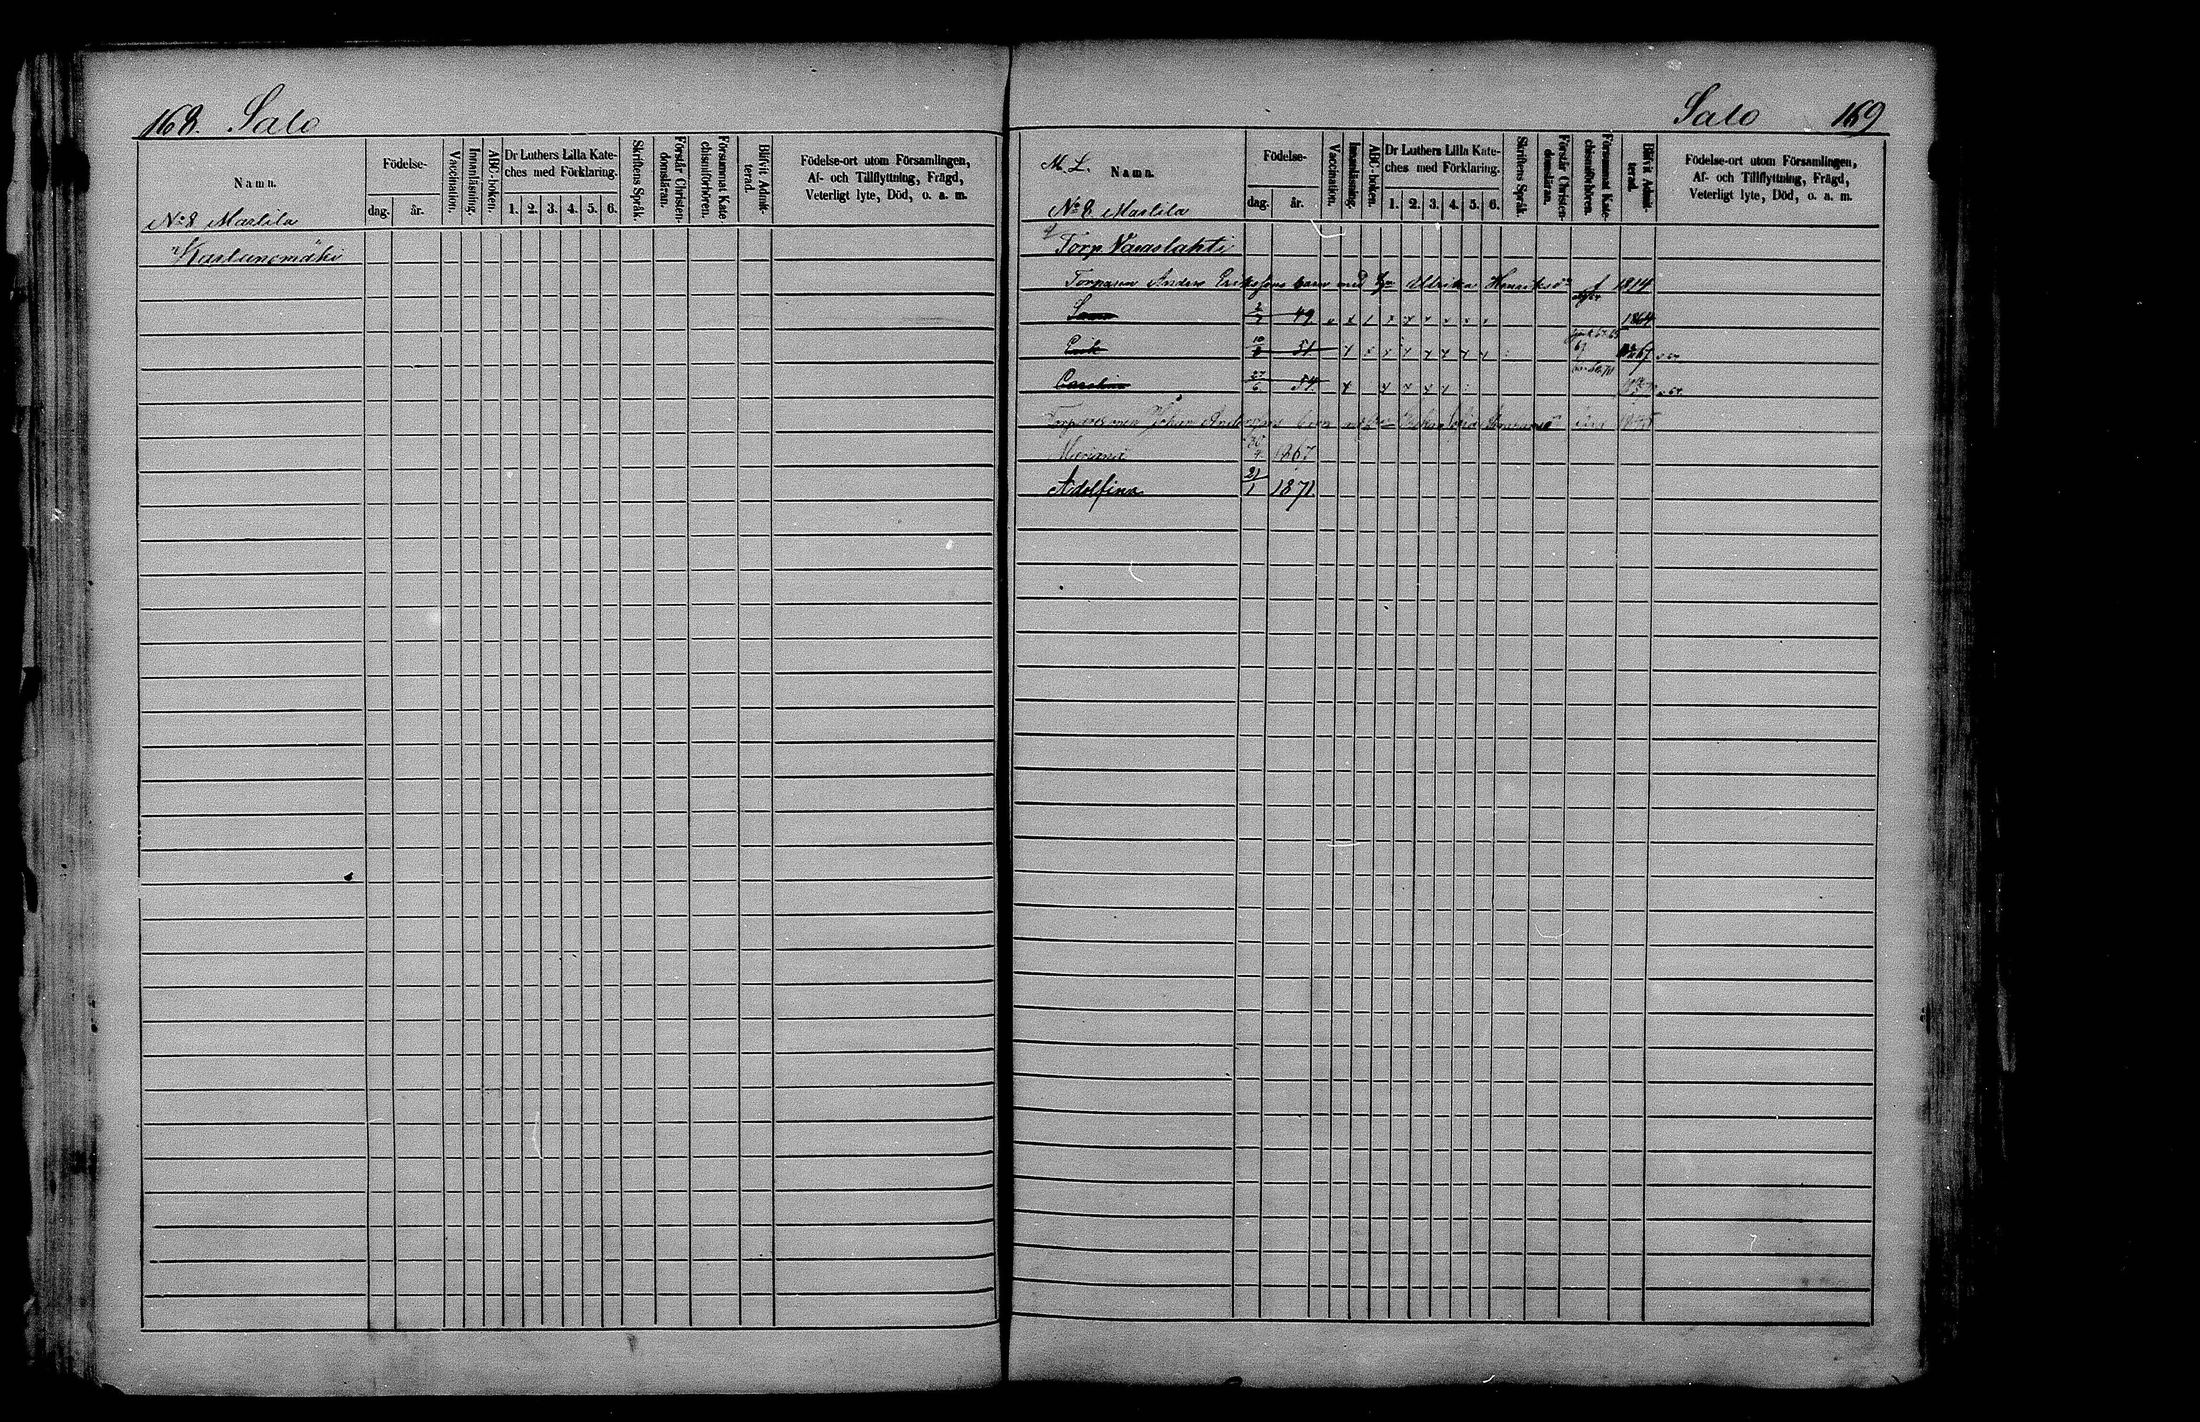 168. Salo
Namn.
Födelse-
dag. år.
Vaccination.
Innanläsning.
ABC-boken.
Dr Luthers Lilla Kate-
ches med Förklaring.
1. 2. 3. 4. 5. 6.
Skriftens Språk.
Förstår Christen-
domsläran.
Försummat Kate-
chismiförhören.
Blifvit Admit-
terad.
Födelse-ort utom Församlingen,
Af- och Tillflyttning, Frägd,
Veterligt lyte, Död, o. a. m.
No 8 Martila
Salo 169
M. L. Namn.
Födelse-
dag. år.
Vaccination.
Innanläsning.
ABC-boken.
Dr Luthers Lilla Kate-
ches med Förklaring.
1. 2. 3. 4. 5. 6.
Skriftens Språk.
Förstår Christen-
domsläran.
Försummat Kate-
chismiförhören.
Blifvit Admit-
terad.
Födelse-ort utom Församlingen,
Af- och Tillflyttning, Frägd,
Veterligt lyte, Död, o. a. m.
No 8 Martila
Torp. Varaslahti
Torparen Anders Erikssons barn med Ulrika 1814
49 1864
Erik 10 51 67
Carolina 27/6 54
Johan barn
1867
Adolfina 21/1 1871